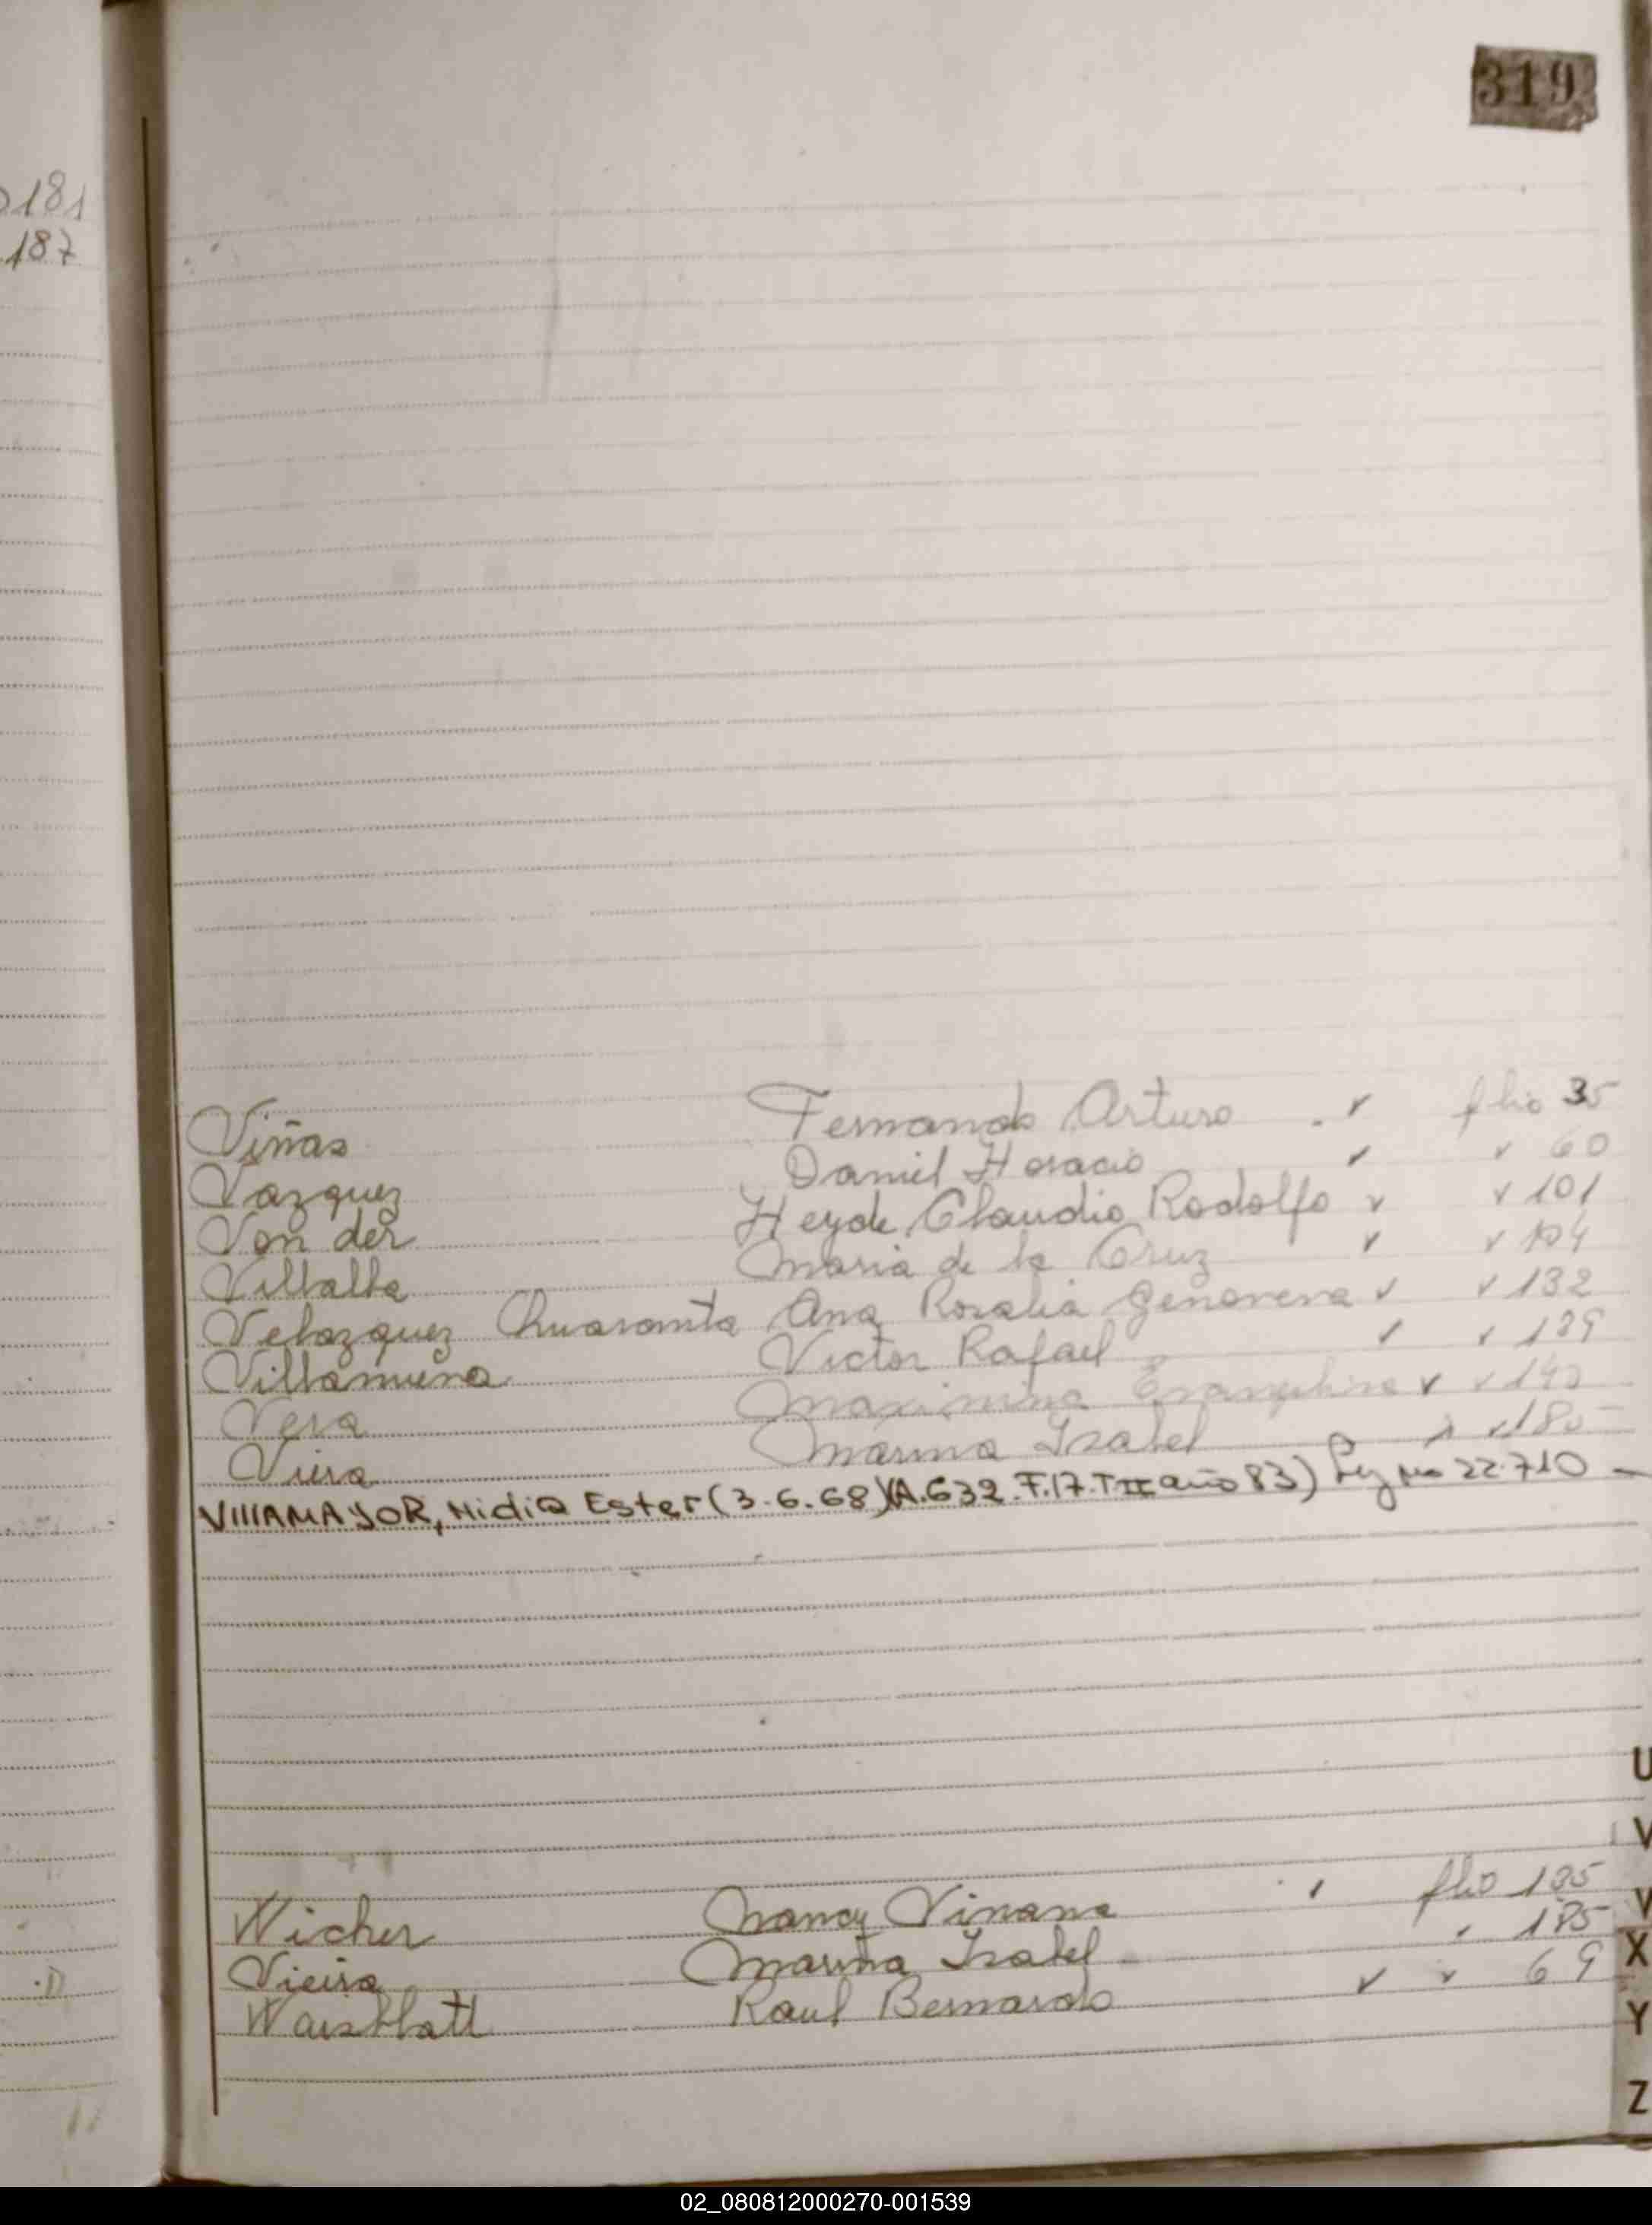 319
181
187
Viñas Fernando Arturo folio 35
Vazquez Daniel Horacio 60
Von der Heyde Claudio Rodolfo 101
Villalba Maria de la Cruz 104
Velazquez Ana Rosalia Genoveva 132
Victor Rafael 139
Vera Maximina 140
Viera Marina Isabel 180
VIllAMAYOR, Nidia Ester (3.6.68)(A.632.F.17.TII año 83) Ley No 22.710
Wicher Nancy Viviana folio 135
Vieira Marina Isabel 185
Waisblatt Raul Bernardo 69
U
V
V
X
Y
Z
02_080812000270-001539